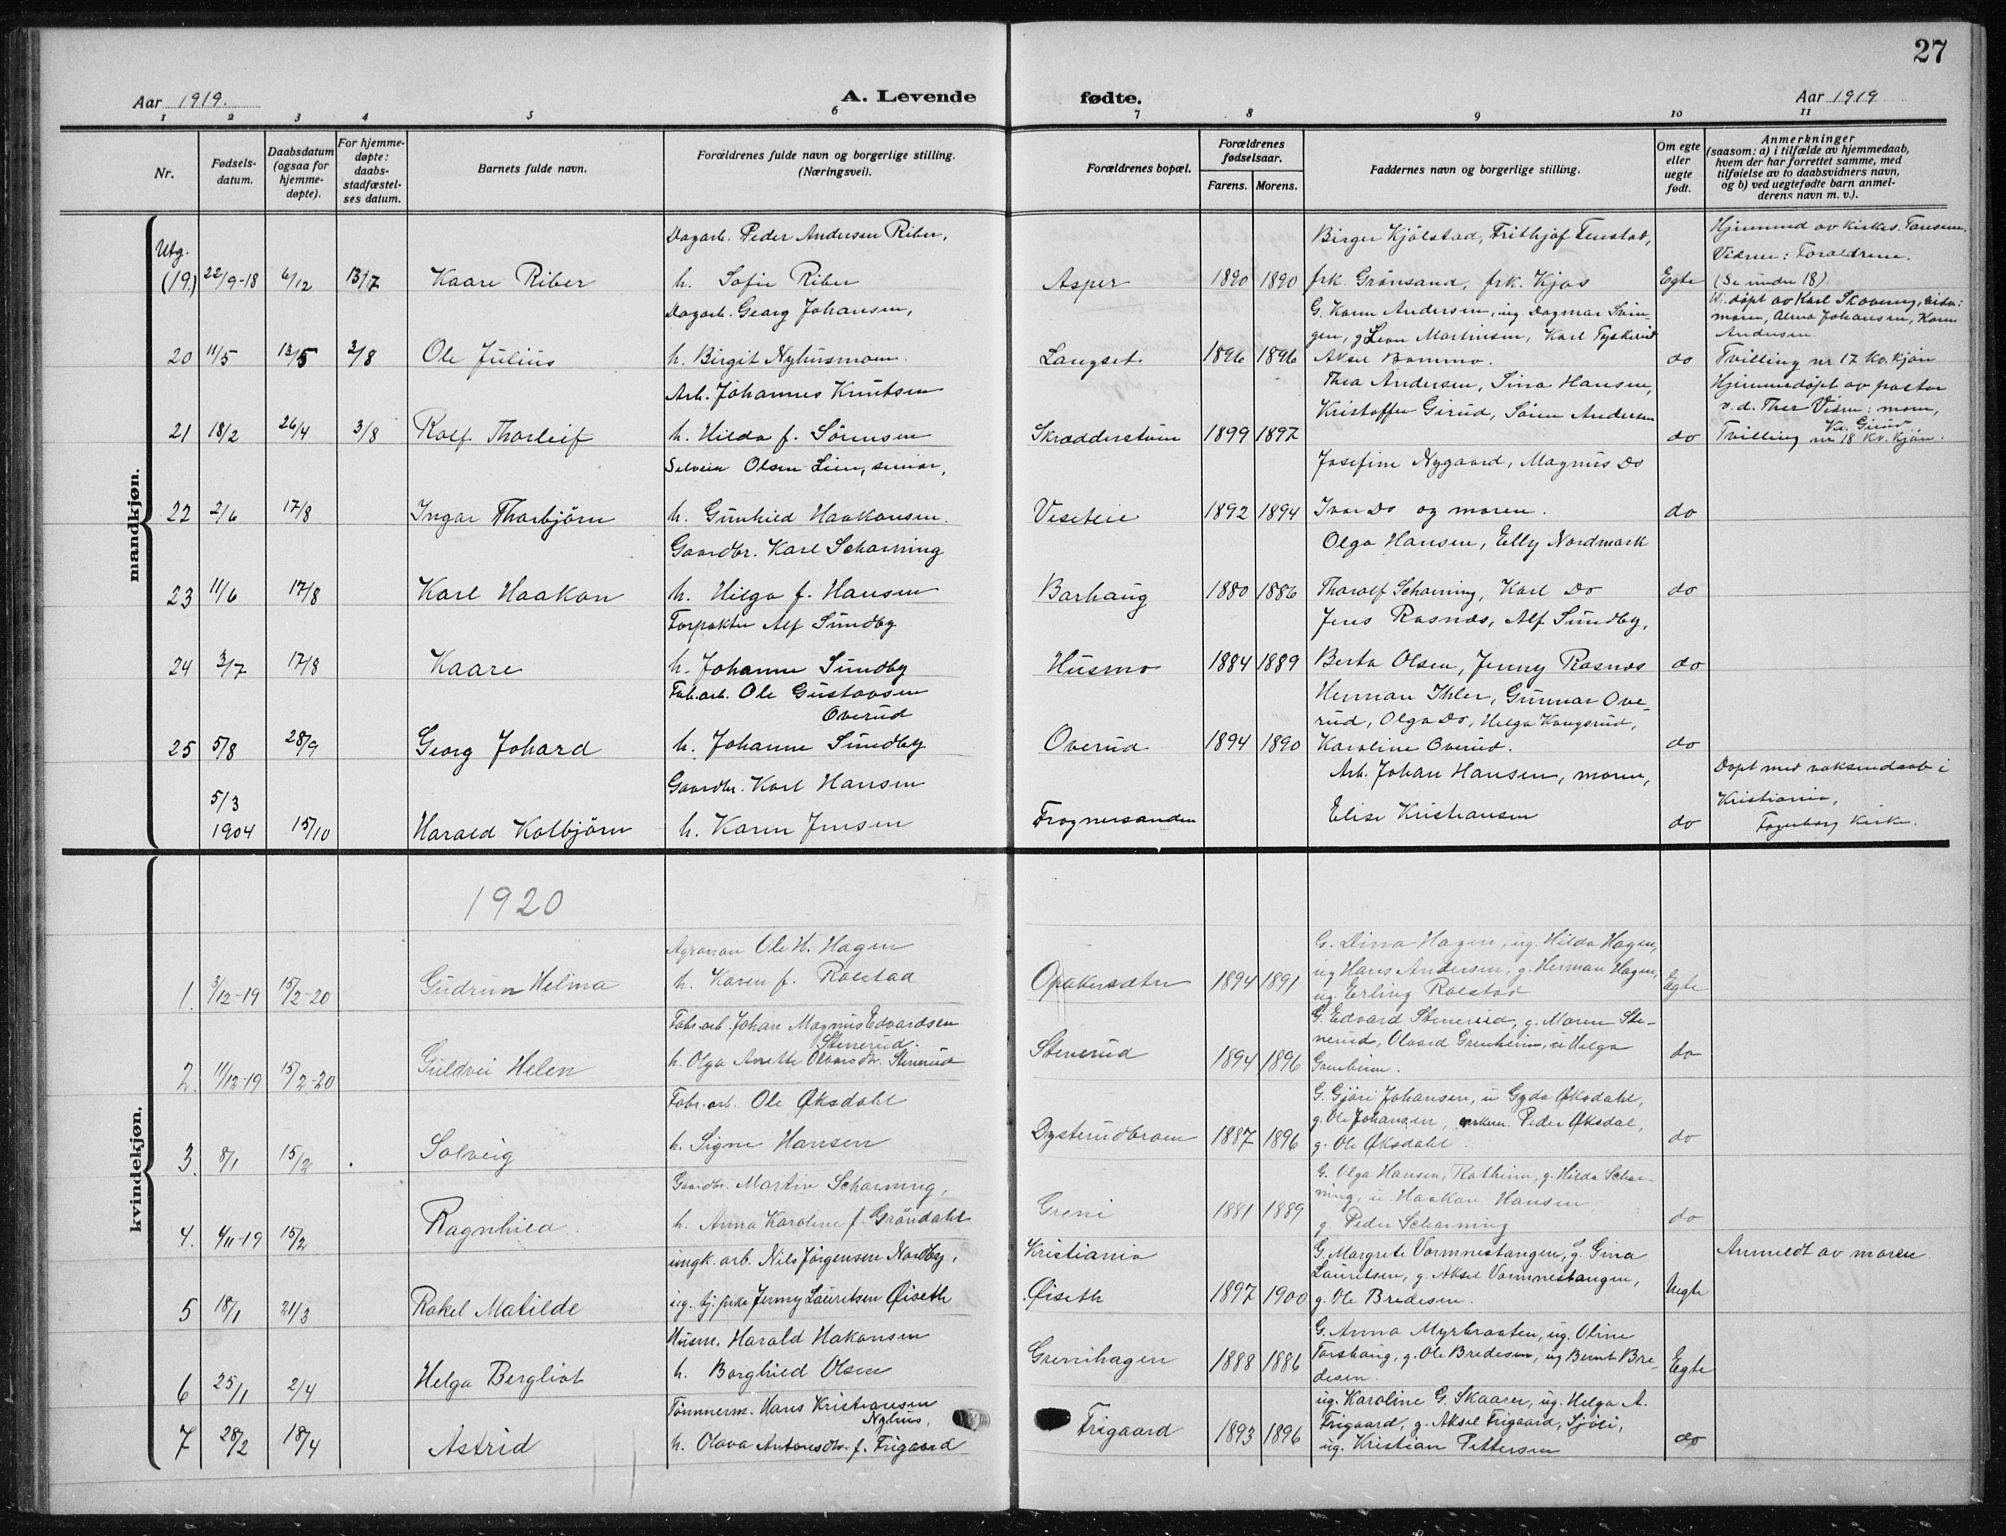 27
Aar 1919.
A. Levende
fødte.
Aar 1919
1 2 3 4 5 6 7 8 9 10 11
Nr.
Fødsels-
datum.
Daabsdatum
(ogsaa for
hjemme-
døpte).
For hjemme-
døpte:
daabs-
stadfæstel-
ses datum.
Barnets fulde navn.
Forældrenes fulde navn og borgerlige stilling.
(Næringsvei).
Forældrenes bopæl.
Forældrenes
fødselsaar.
Farens. Morens.
Faddernes navn og borgerlige stilling.
Om egte
eller
uegte
født.
Anmerkninger
(saasom: a) i tilfælde av hjemmedaab,
hvem der har forrettet samme, med
tilføielse av to daabsvidners navn,
og b) ved uegtefødte barn anmel-
derens navn m. v.).
mandkjøn.
Utg.
(19.) 22/9-18 6/12 13/17 Kaare Riber
Dagarb. Peder Andersen Riber,
h. Sofie Riber
Asper 1890 1890
Birger Kjølstad, Frithjof Tenstad,
frk. Grønsand, frk. Kjos
Egte
Vidner: Forældrene.
(Se under 18).
20 11/5 13/5 3/8 Ole Julius
Dagarb. Georg Johansen,
h. Birgit Nyhusmoen.
Langset 1896 1896
G. Karen Andersen, ug. Dagmar Svin-
gen, g Leon Martinsen, Karl Tyskerud
Aksel Bammo.
do
Hj. døpt av Karl Skovening, vidn:
moren, Alma Johansen, Karen
Andersen
Tvilling nr 17 Kv. kjøn
21 18/2 26/4 3/8 Rolf Thorleif
Arb. Johannes Knutsen
h. Hilda f. Sørensen
Skrædderstuen 1899 1897
Thea Andersen, Sina Hansen,
Kristoffer Girud, Søren Andersen
do
Hjemmedøpt av pastor
v. d. Ther Vidne: moren,
Kr. Girud
Tvilling nr 18 Kv. kjøn.
22 2/6 17/8 Ingar Thorbjørn
Selveier Olsen Lien, senior,
h. Gunhild Haakonsen.
Veseteie 1892 1894
Josefine Nygaard, Magnus Do
Ivar Do og moren.
do
23 11/6 17/8 Karl Haakon
Gaardbr. Karl Scharning
h. Hilga f. Hansen
Borhaug 1880 1886
Olga Hansen, Elly Nordmark
Thoralf Scharning, Karl Do
do
24 3/7 17/8 Kaare
Forpakter Alf Sundby
h. Johanne Sundby
Husmo 1884 1889
Jens Rasnæs, Alf Sundby,
Berta Olsen, Jenny Rasnæs
do
25 5/8 28/9 Georg Johard
Fab.arb. Ole Gustavsen
Overud
h. Johanne Sundby
Overud 1894 1890
Herman Ihler, Gunnar Ove-
rud, Olga Do, Helga Kongsrud,
Karoline Overud.
do
5/3
1904 15/10 Harald Kolbjørn
Gaardbr. Karl Hansen
h. Karen Jensen
Frognersanden
Arb. Johan Hansen, moren,
Elise Kristiansen
do
Døpt med voksendaab i
Kristiania,
Fagerborg Kirke.
kvindekjøn.
1920
1. 3/12-19 15/2-20 Gudrun Helma
Agronom Ole H. Hagen
h. Karen f. Rolstad
Opakersæter 1894 1891
G. Dina Hagen, ug. Hilda Hagen,
ug Hans Andersen, g. Herman Hagen,
ug. Erling Rolstad
Egte
2. 11/12-19 15/2-20 Guldvei Helen
Fabr.arb. Johan Magnus Edvardsen
Stenerud.
h. Olga Anette Olavsdtr. Stenerud
Stenerud 1894 1896
G. Edvard Stenerud, g. Maren Ste-
nerud, Olvard Grenheim, u Helga
Grenheim.
do
3. 8/1 15/2 Solveig
Fabr.arb. Ole Øksdahl
h. Signe Hansen
Dysterudbraaen 1887 1896
G. Gjøri Johansen, u Gyda Øksdahl,
g. Ole Johansen, enkem. Peder Øksdal,
g. Ole Øksdahl.
do
4. 4/11-19 15/2 Ragnhild
Gaardbr. Martin Scharning,
h. Anna Karoline f. Grøndahl
Greni 1881 1889
G. Olga Hansen, Ratheim, g. Hilda Schar-
ning, u. Haakon Hansen
g. Peder Scharning
do
5 18/1 21/3 Rakel Matilde
ungk. arb. Nils Jørgensen Nordby,
ug. tj.pike Jenny Lauritsen Øiseth
Kristiania
Øiseth 1897 1900
G. Margrete Vormnestangen, g. Gina
Lauritsen, g. Aksel Vormnestangen,
g. Ole Bredesen.
Uegte
Anmeldt av moren.
6 25/1 2/4 Helga Bergliot
Husm. Harald Hakonsen
h. Borghild Olsen
Grenihagen 1888 1886
G. Anna Myrbraaten, ug. Oline
Torshaug, g. Ole Bredesen, ug Bernt Bre-
desen.
Egte
7 28/2 18/4 Astrid
Tømmerm. Hans Kristiansen
Nylius,
h. Olava Antonsdtr. f. Frigaard
Frigaard 1893 1896
ug. Karoline G. Skaarer, ug. Helga A.
Frigaard, g. Aksel Frigaard, Sjøli,
ug. Kristian Pettersen
do